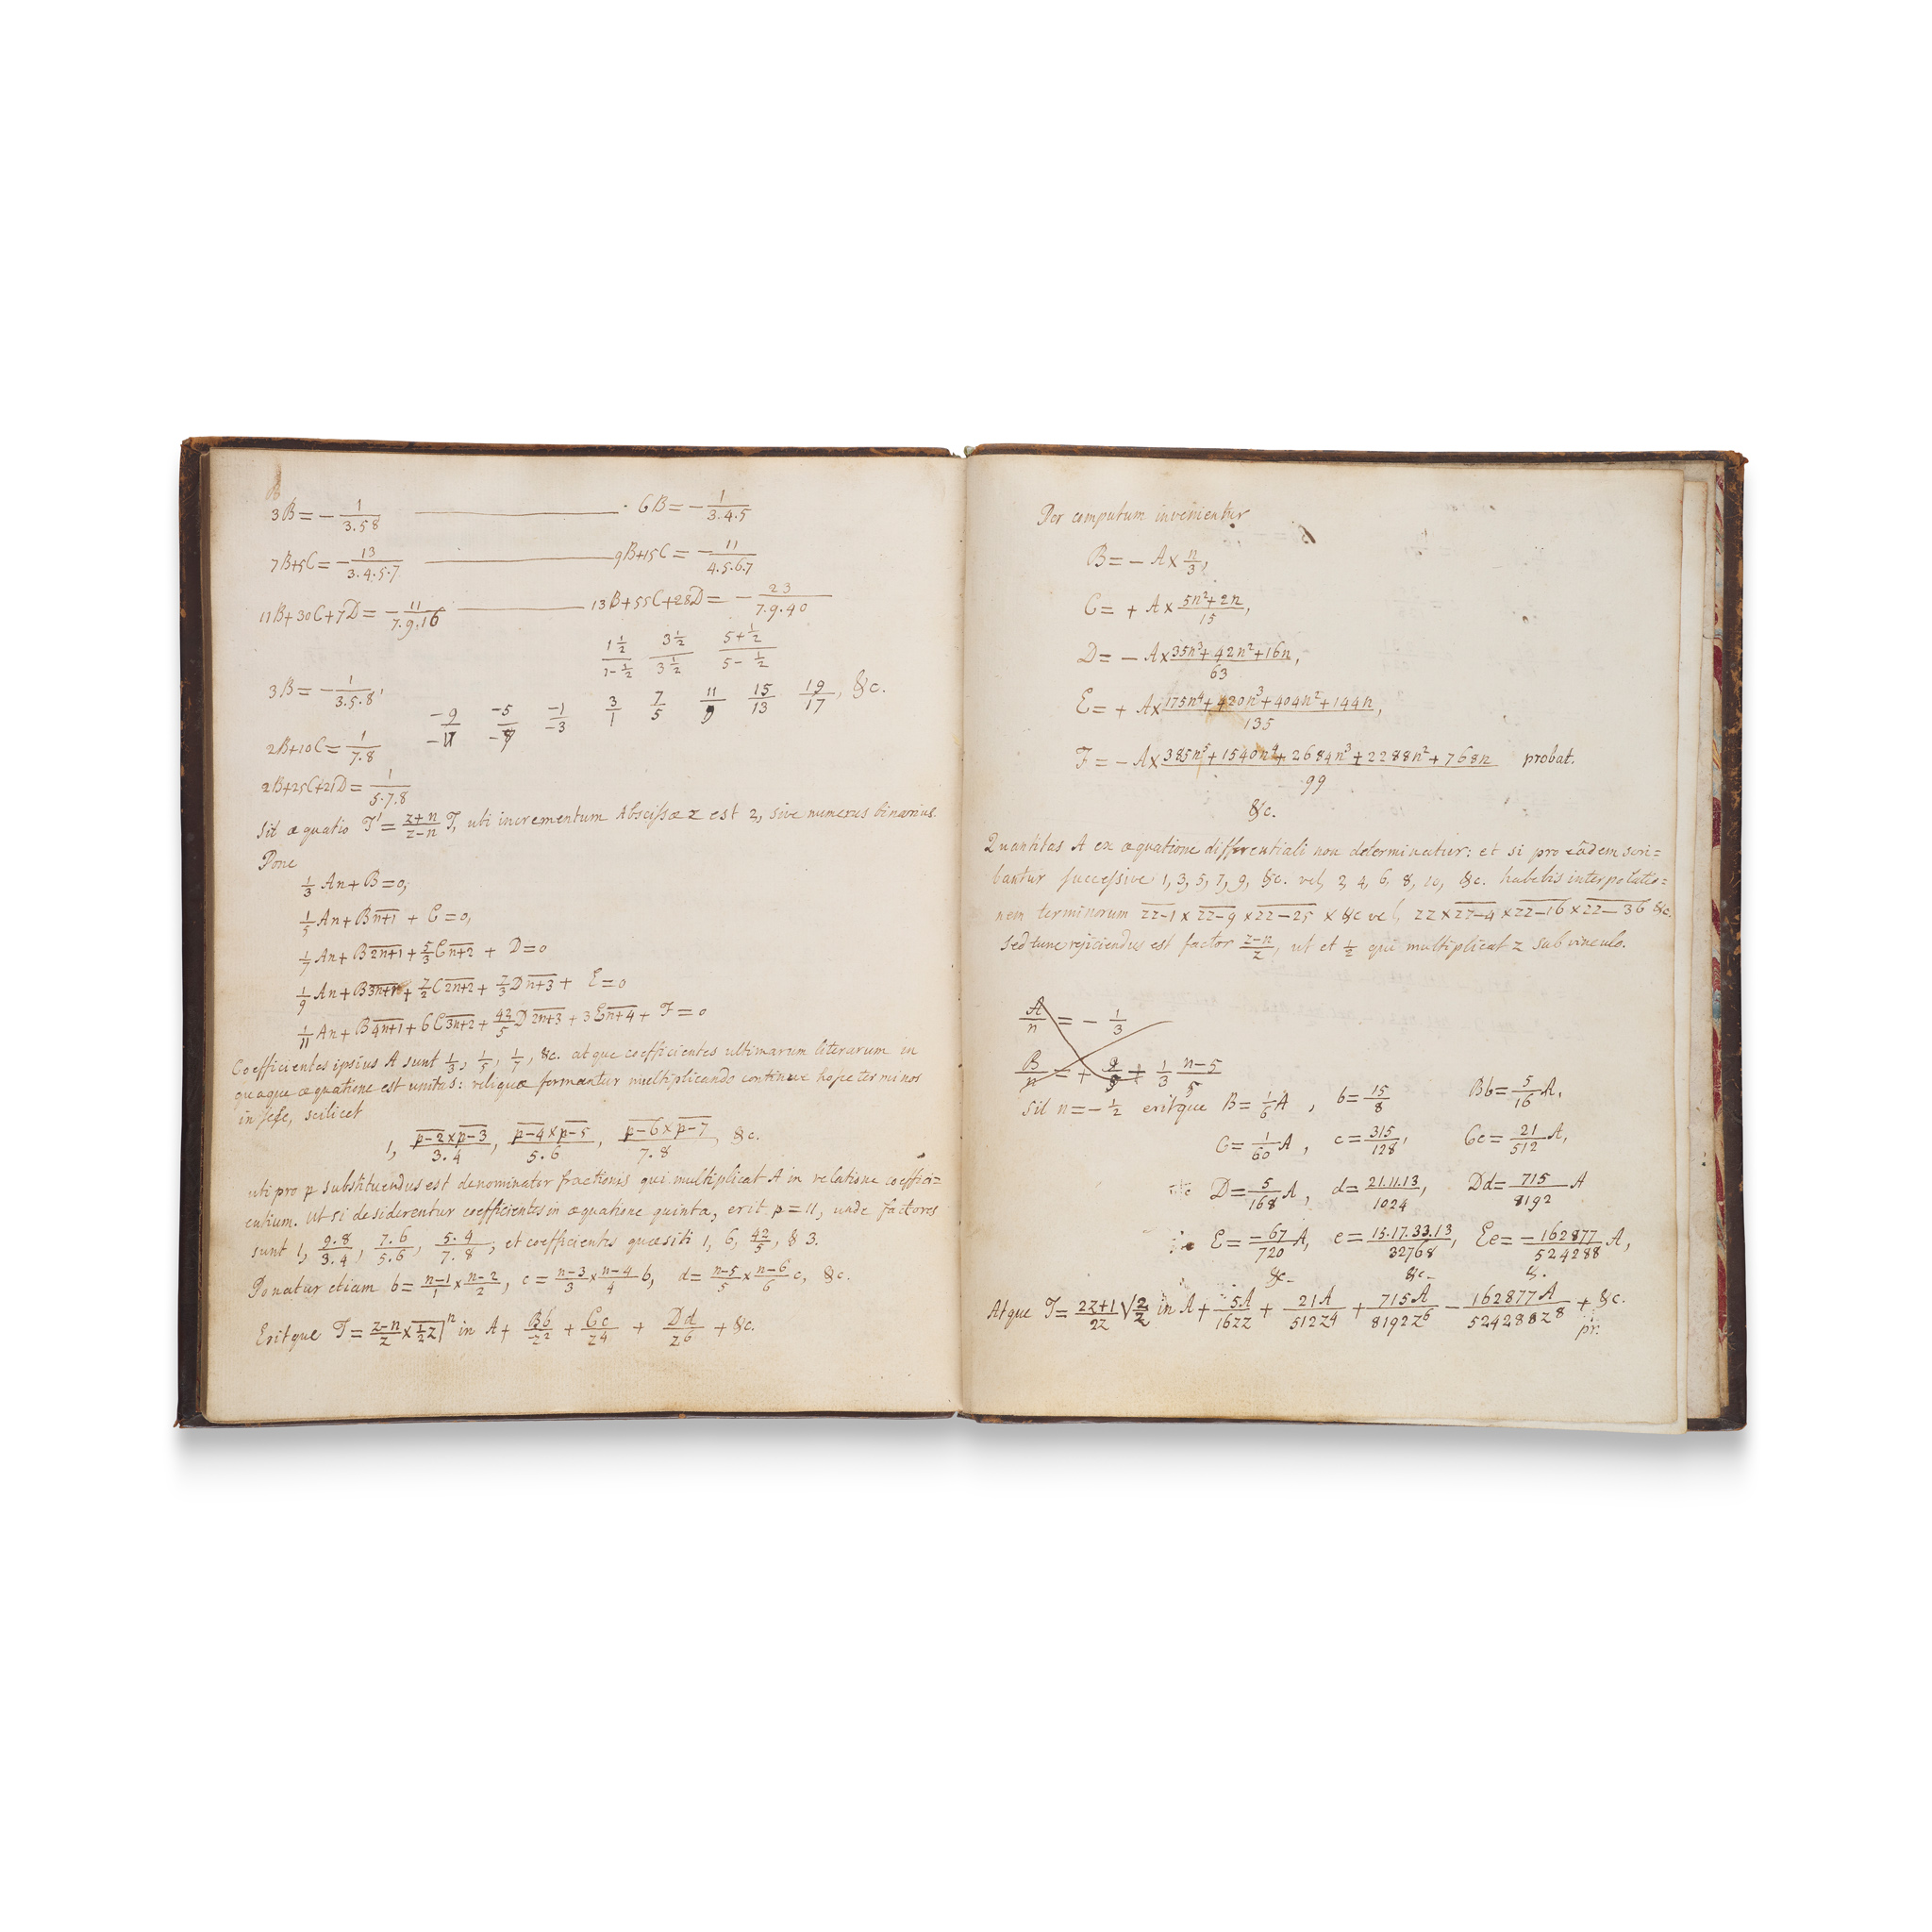 3B = - 1/3.5.8 ——— . 6B = - 1/3.4.5
7B+5C = - 13/3.4.5.7 ——— 9B+15C = - 11/4.5.6.7
11B+30C+7D = - 11/7.9.16 ——— 13B+55C+28D = - 23/7.9.40
1½/1-½ 3½/3½ 5+½/5-½
3B = - 1/3.5.8,
-9/-11 -5/-7 -1/-3 3/1 7/5 11/9 15/13 19/17, &c.
2B+10C = 1/7.8
2B+25C+21D = 1/5.7.8
Sit æquatio T' = z+n/z-n T, uti incrementum Abscissæ z est 2, sive numerus binarius.
Pone
1/3 An + B = 0,
1/5 An + B n+1 + C = 0,
1/7 An + B 2n+1 + 5/3 C n+2 + D = 0
1/9 An + B 3n+1 + 7/2 C 2n+2 + 7/3 D n+3 + E = 0
1/11 An + B 4n+1 + 6 C 3n+2 + 42/5 D 2n+3 + 3 E n+4 + F = 0
Coefficientes ipsius A sunt 1/3, 1/5, 1/7, &c. atque coefficientes ultimarum literarum in
quaque æquatione est unitas: reliquæ formantur multiplicando continue hosce terminos
in sese, scilicet
1, p-2 × p-3/3.4, p-4 × p-5/5.6, p-6 × p-7/7.8, &c.
uti pro p substituendus est denominator fractionis qui multiplicat A in relatione coeffici=
entium. Ut si desiderentur coefficientes in æquatione quinta, erit p = 11, unde factores
sunt 1, 9.8/3.4, 7.6/5.6, 5.4/7.8, et coefficientes quæsiti 1, 6, 42/5, & 3.
Ponatur etiam b = n-1/1 × n-2/2, c = n-3/3 × n-4/4 b, d = n-5/5 × n-6/6 c, &c.
Eritque T = z-n/z × ½z|ⁿ in A + Bb/z² + Cc/z⁴ + Dd/z⁶ + &c.
Per computum invenientur
B = - A × n/3,
C = + A × 5n²+2n/15,
D = - A × 35n³+42n²+16n/63,
E = + A × 175n⁴+420n³+404n²+144n/135,
F = - A × 385n⁵+1540n⁴+2684n³+2288n²+768n/99 probat.
&c.
Quantitas A ex æquatione differentiali non determinatur: et si pro eâdem scri=
bantur successive 1, 3, 5, 7, 9, &c. vel, 2, 4, 6, 8, 10, &c. habebis interpolatio=
nem terminorum zz-1 × zz-9 × zz-25 × &c vel, zz × zz-4 × zz-16 × zz-36 &c.
sed tunc rejiciendus est factor z-n/z, ut et ½ qui multiplicat z sub vinculo.
A/n = - 1/3
B/n = + 1/3 n-5/5
Sit n = -½ eritque B = 1/6 A, b = 15/8 Bb = 5/16 A,
C = 1/60 A, c = 315/128, Cc = 21/512 A,
D = 5/168 A, d = 21.11.13/1024, Dd = 715/8192 A
E = -67/720 A, e = 15.17.33.13/32768, Ee = -162877/524288 A,
&c. &c. &.
Atque T = 2z+1/2z √2/z in A + 5A/16zz + 21A/512z4 + 715A/8192z6 - 162877A/524288z8 + &c.
pr.